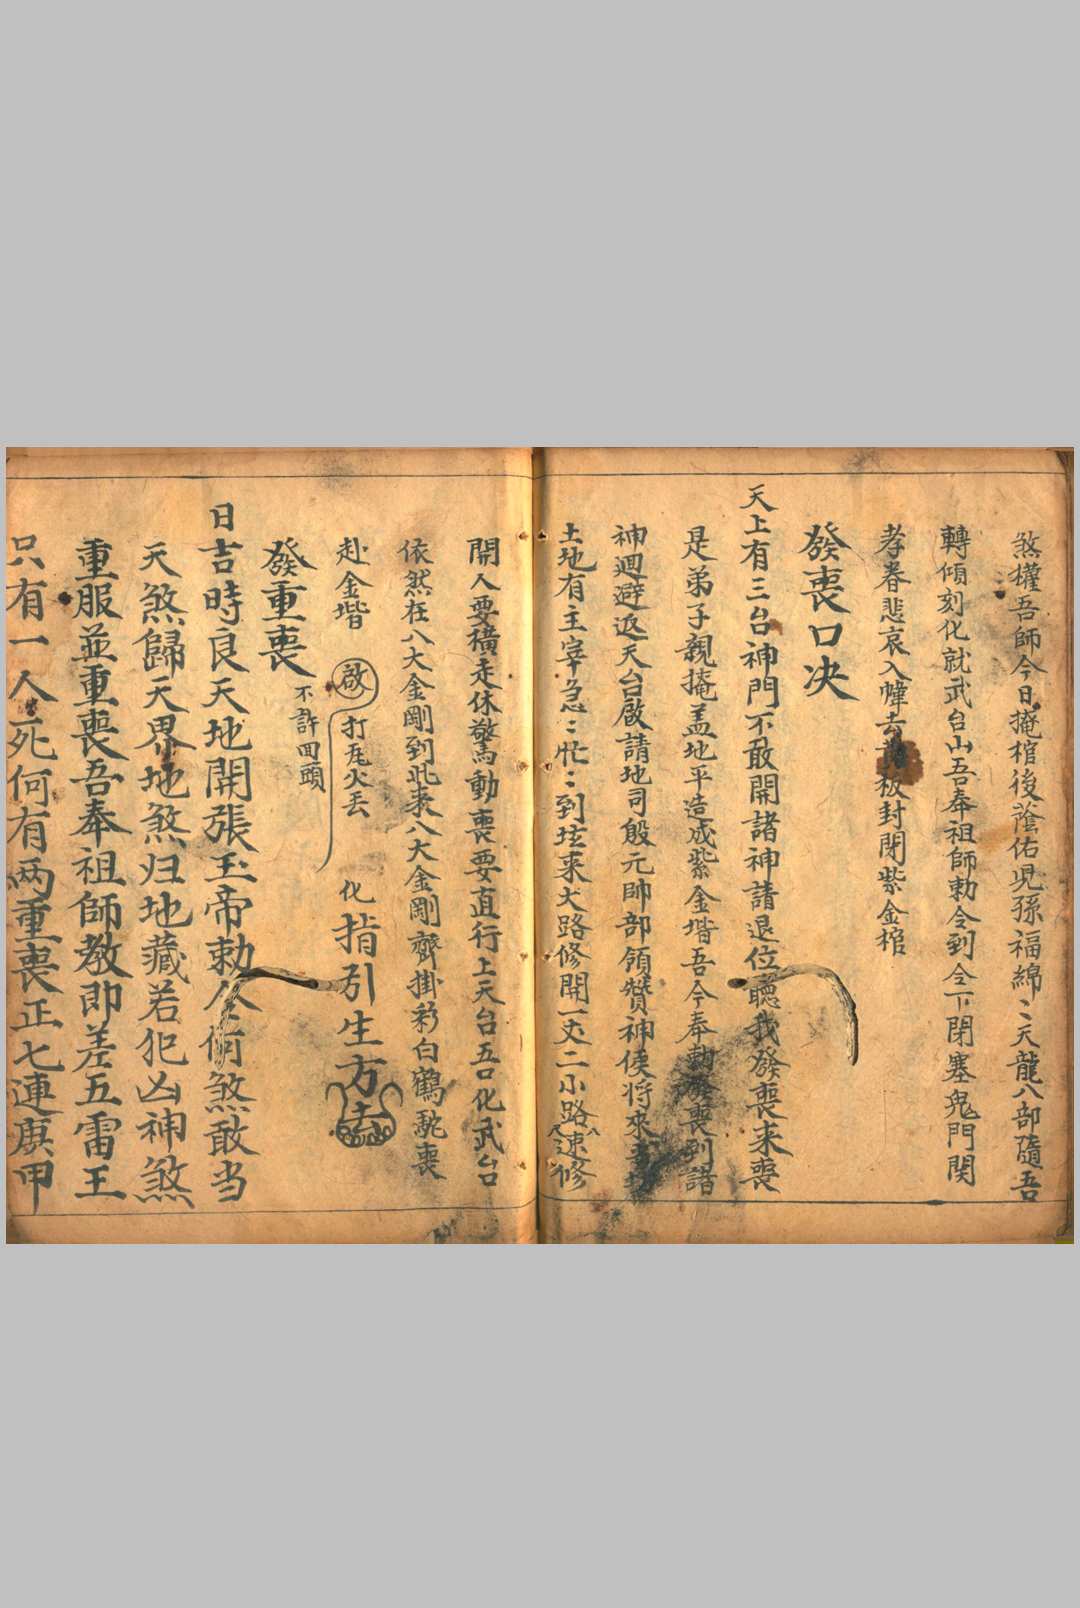 煞權吾師今日掩棺後蔭佑児孫福綿〻天龍八部隨吾
轉傾刻化就武台山吾奉祖師勅令到令下閉塞鬼門関
孝眷悲哀入幃去 板封閉紫金棺
發喪口决
天上有三台神門不敢開諸神請退位聽我發喪来喪
是弟子親掩盖地平造成紫金堦吾今奉勅發喪到諸
神迴避返天台啟請地司殷元帥部領贊神侯将來
土地有主宰急〻忙〻到坟来大路修開一丈二小路八尺速修
開人要橫走休驚動喪要直行上天台五口化武台
依然在八大金剛到此来八大金剛齊掛彩白鶴馳喪
赴金堦 啟 打瓦火丟 化指引生方去
發重喪 不許回頭
日吉時良天地開張玉帝勅令何煞敢当
天煞歸天界地煞归地藏若犯凶神煞
重服並重喪吾奉祖師教即差五雷王
只有一人死何有两重喪正七連庚甲